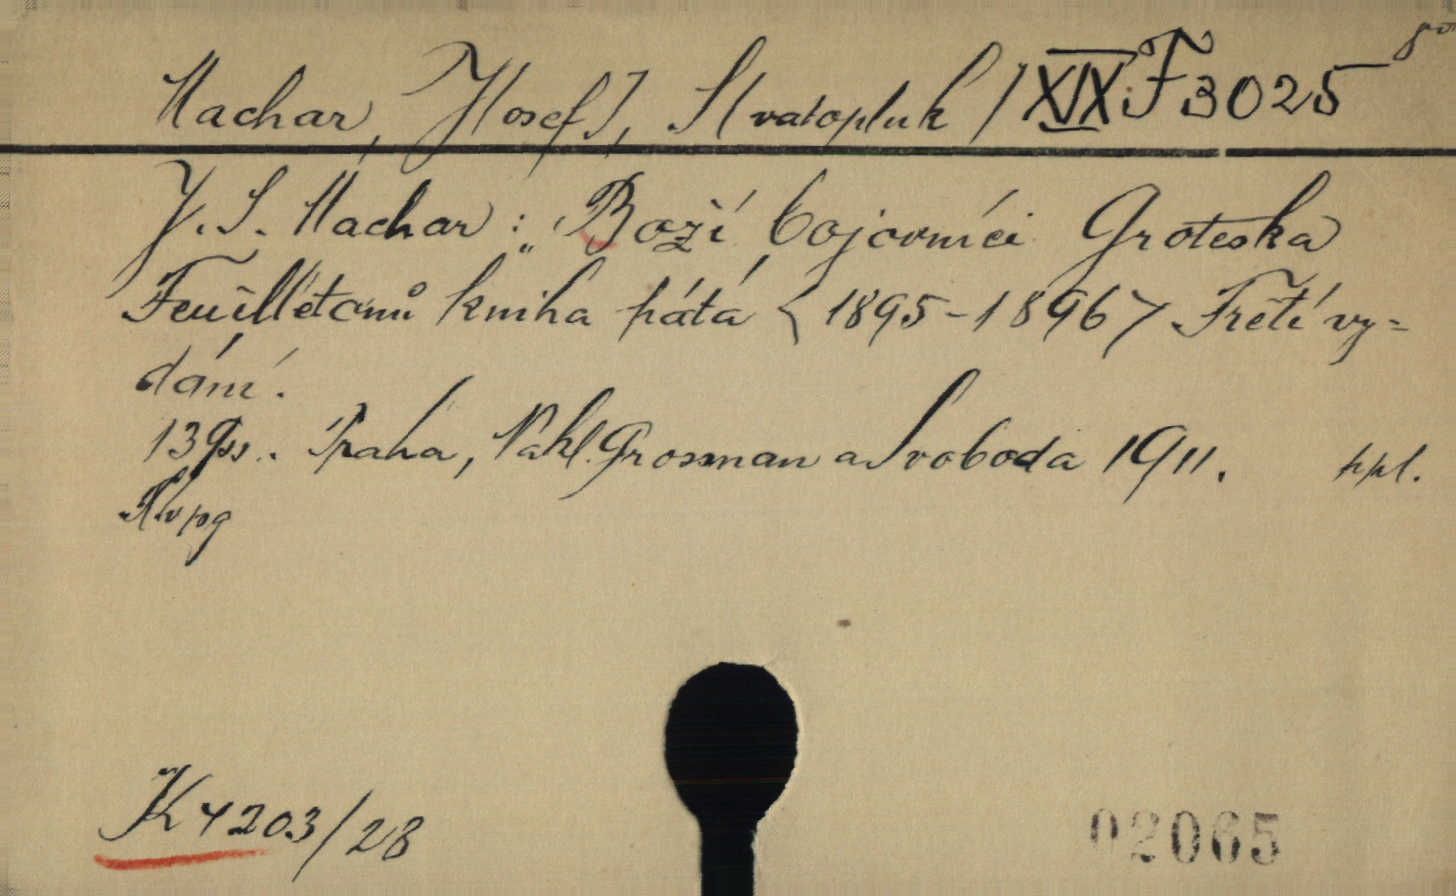 Machar, J[osef], S[vatopluk] XIX F 3025 8°
J. S. Machar: „Boží bojovníci Groteska
Feuilletonů kniha pátá <1895-1896> Třetí vy=
dání.
139ss. Praha, Nakl. Grosman a Svoboda 1911. ppl.
K 4203/28
02065